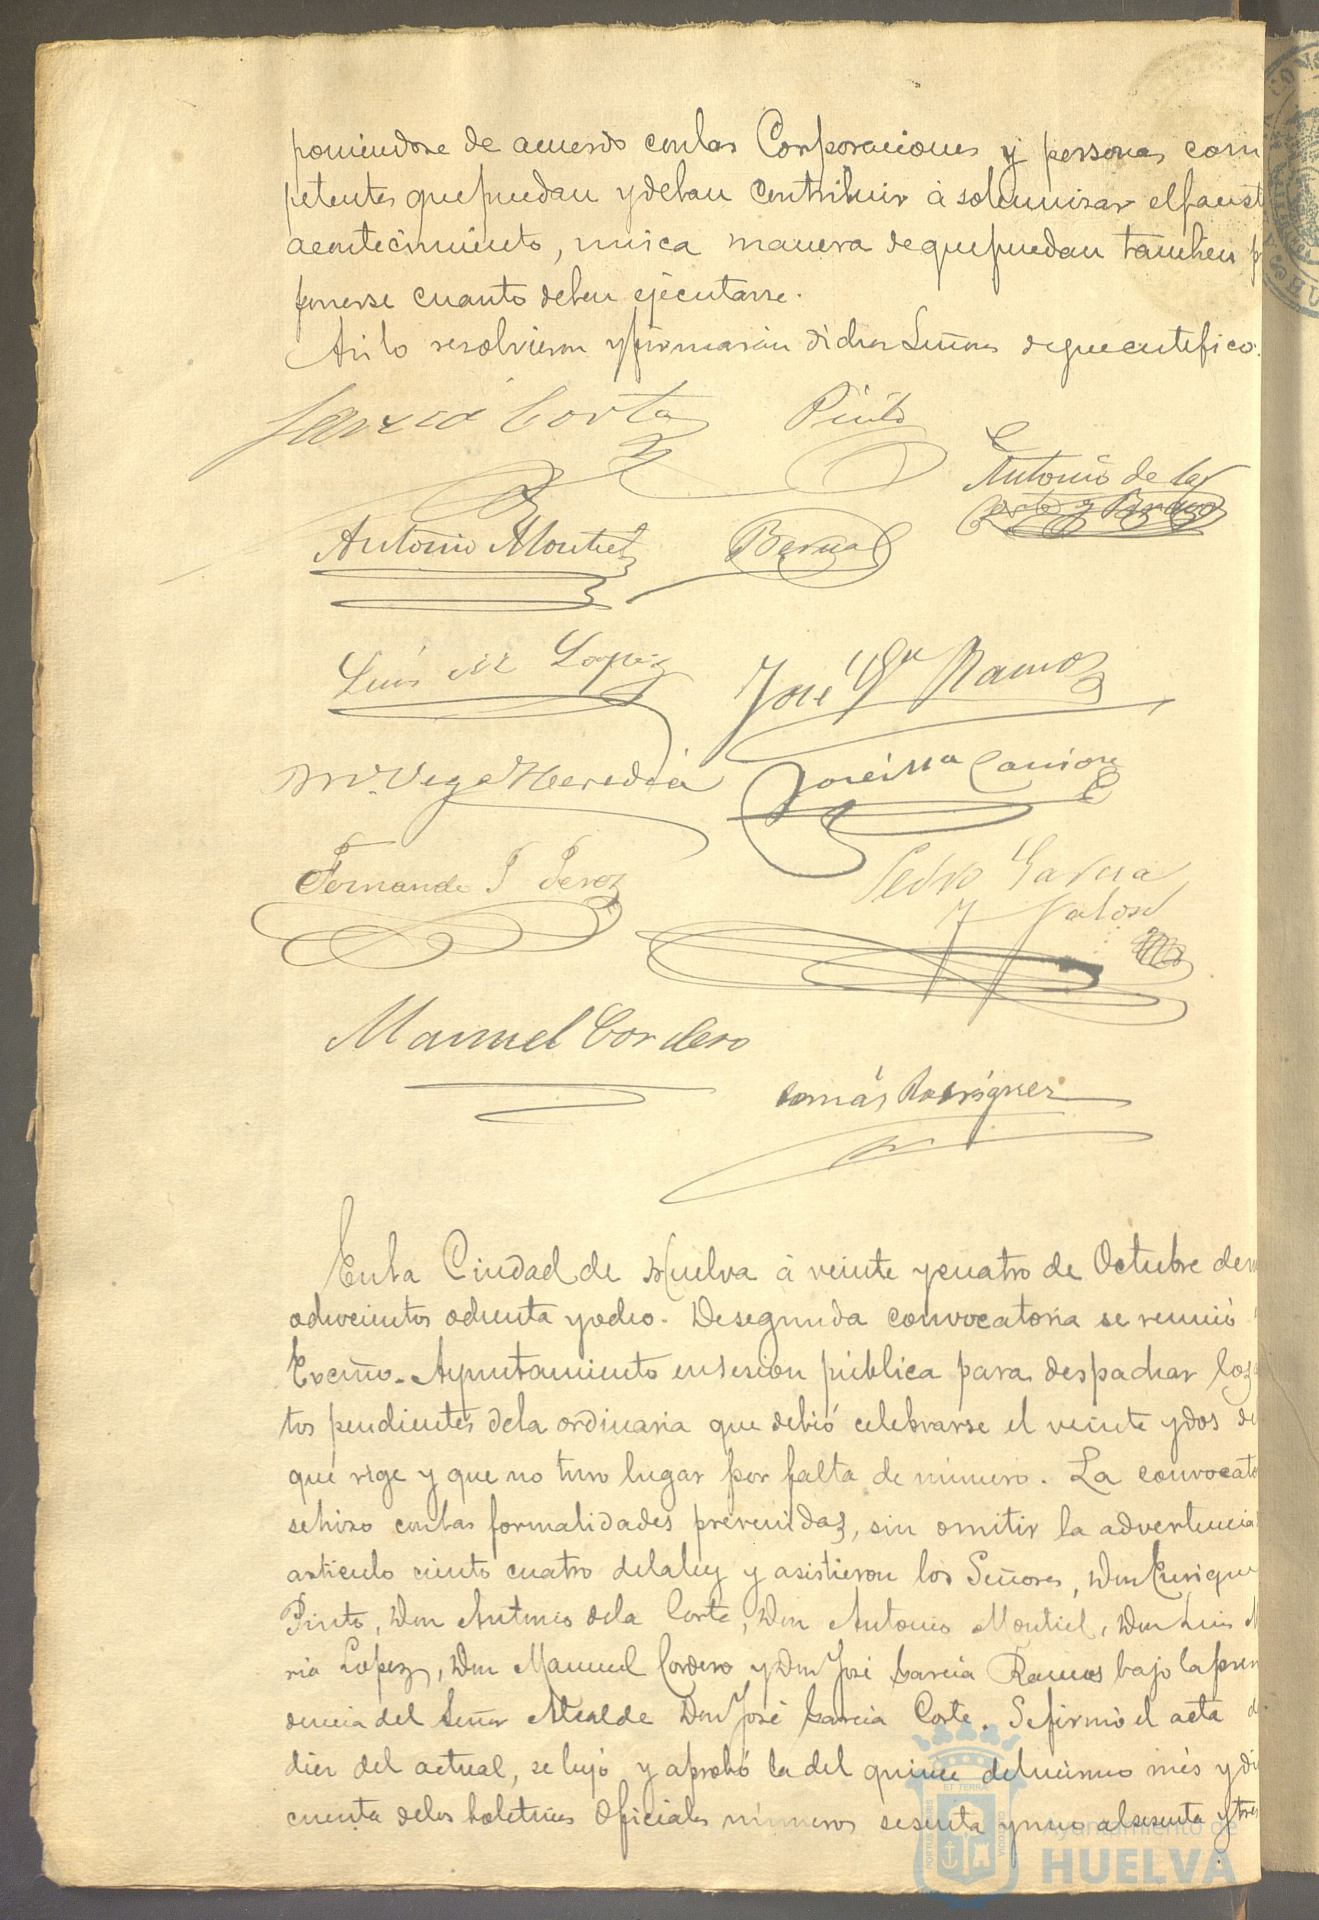 poniendose de acuerdo con las Corporaciones y personas com
petentes que puedan y deban contribuir á solemnizar el faust
acontecimiento, unica manera de que puedan tambien p
ponerse cuanto deben ejecutarse.
Asi lo resolvieron y firmarán dichos Señores de que certifico.
Garcia Corte Pinto
Antonio de la
Corte y Bravo
Antonio Montiel Bernal
Luis Mª Lopez José Gª Ramos
M. Vega Heredia José Mª Carrion
Fernando P Perez Pedro Garcia
y Jalosel
Manuel Cordero
Tomás Rodriguez
En la Ciudad de Huelva á veinte y cuatro de Octubre de m
ochocientos ochenta y ocho. De segunda convocatoria se reunió
Excmo. Ayuntamiento en sesion pública para despachar los
tos pendientes de la ordinaria que debió celebrarse el veinte y dos de
que rige y que no tuvo lugar por falta de número. La convocato
se hizo con las formalidades prevenidas, sin omitir la advertencia
articulo ciento cuatro de la ley y asistieron los Señores, Don Enrique
Pinto, Don Antonio de la Corte, Don Antonio Montiel, Don Luis M
ria Lopez, Don Manuel Cordero y Don José Garcia Ramos bajo la presi
dencia del Señor Alcalde Don José Garcia Corte. Se firmó el acta d
diez del actual, se leyó y aprobó la del quince del mismo més y dió
cuenta de los boletines oficiales números sesenta y uno al sesenta y tres
Ayuntamiento de
HUELVA